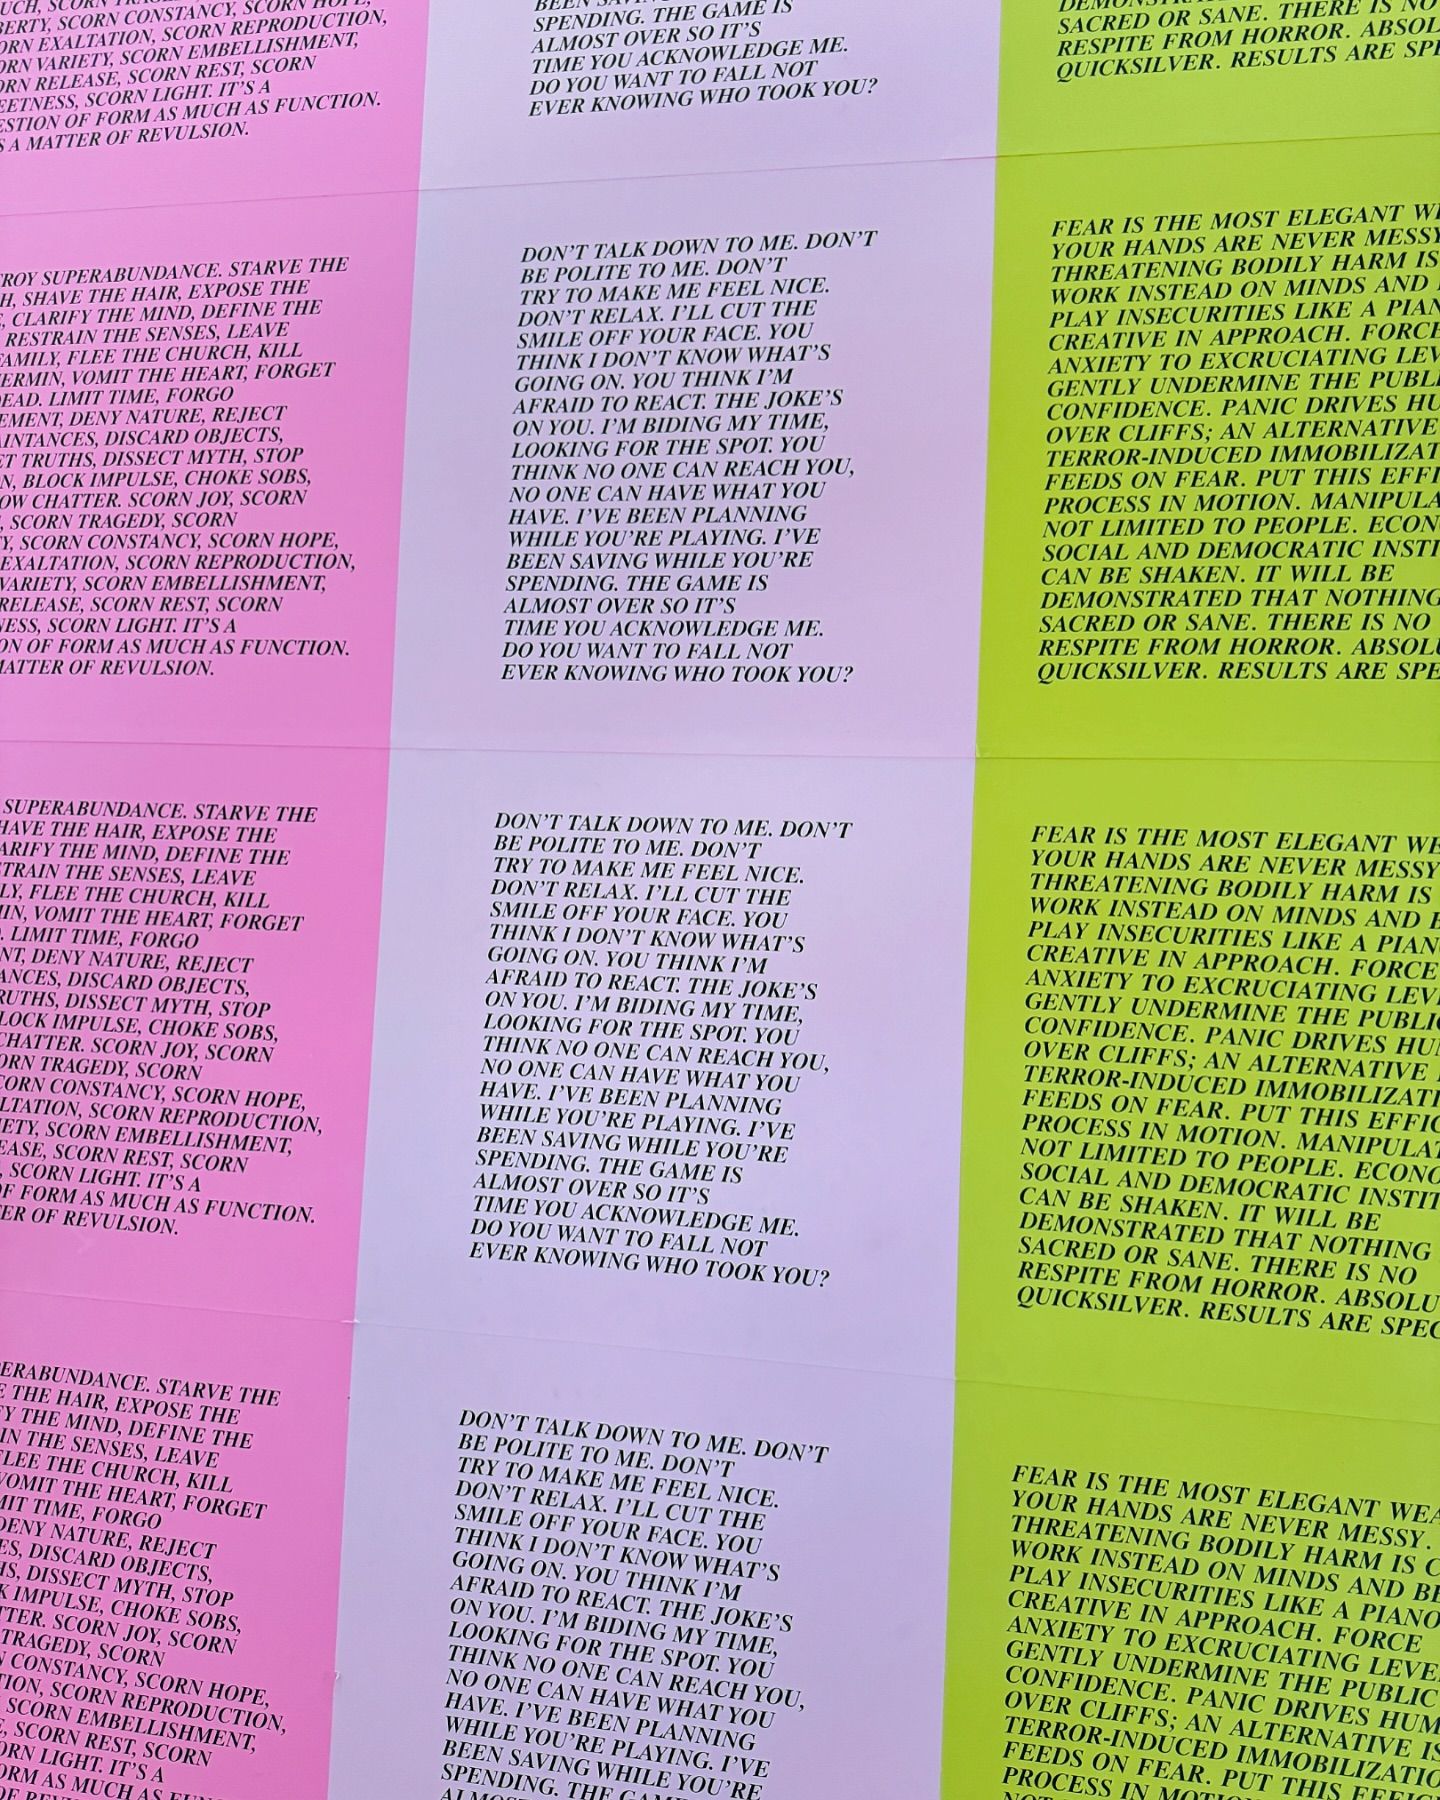 UCH, SCORN
BERTY, SCORN CONSTANCY, SCORN HOPE,
ORN EXALTATION, SCORN REPRODUCTION,
ORN VARIETY, SCORN EMBELLISHMENT,
ORN RELEASE, SCORN REST, SCORN
EETNESS, SCORN LIGHT. IT'S A
ESTION OF FORM AS MUCH AS FUNCTION.
S A MATTER OF REVULSION.
TROY SUPERABUNDANCE. STARVE THE
H, SHAVE THE HAIR, EXPOSE THE
, CLARIFY THE MIND, DEFINE THE
RESTRAIN THE SENSES, LEAVE
FAMILY, FLEE THE CHURCH, KILL
ERMIN, VOMIT THE HEART, FORGET
DEAD. LIMIT TIME, FORGO
EMENT, DENY NATURE, REJECT
AINTANCES, DISCARD OBJECTS,
ET TRUTHS, DISSECT MYTH, STOP
N, BLOCK IMPULSE, CHOKE SOBS,
OW CHATTER. SCORN JOY, SCORN
, SCORN TRAGEDY, SCORN
Y, SCORN CONSTANCY, SCORN HOPE,
EXALTATION, SCORN REPRODUCTION,
VARIETY, SCORN EMBELLISHMENT,
RELEASE, SCORN REST, SCORN
NESS, SCORN LIGHT. IT'S A
ON OF FORM AS MUCH AS FUNCTION.
MATTER OF REVULSION.
SUPERABUNDANCE. STARVE THE
HAVE THE HAIR, EXPOSE THE
ARIFY THE MIND, DEFINE THE
STRAIN THE SENSES, LEAVE
LY, FLEE THE CHURCH, KILL
MIN, VOMIT THE HEART, FORGET
. LIMIT TIME, FORGO
NT, DENY NATURE, REJECT
ANCES, DISCARD OBJECTS,
RUTHS, DISSECT MYTH, STOP
LOCK IMPULSE, CHOKE SOBS,
CHATTER. SCORN JOY, SCORN
ORN TRAGEDY, SCORN
CORN CONSTANCY, SCORN HOPE,
LTATION, SCORN REPRODUCTION,
IETY, SCORN EMBELLISHMENT,
EASE, SCORN REST, SCORN
, SCORN LIGHT. IT'S A
OF FORM AS MUCH AS FUNCTION.
ER OF REVULSION.
ERABUNDANCE. STARVE THE
E THE HAIR, EXPOSE THE
FY THE MIND, DEFINE THE
IN THE SENSES, LEAVE
LEE THE CHURCH, KILL
VOMIT THE HEART, FORGET
MIT TIME, FORGO
DENY NATURE, REJECT
ES, DISCARD OBJECTS,
HS, DISSECT MYTH, STOP
K IMPULSE, CHOKE SOBS,
TTER. SCORN JOY, SCORN
TRAGEDY, SCORN
N CONSTANCY, SCORN HOPE,
TION, SCORN REPRODUCTION,
SCORN EMBELLISHMENT,
E, SCORN REST, SCORN
ORN LIGHT. IT'S A
ORM AS MUCH AS
BEEN
SPENDING. THE GAME IS
ALMOST OVER SO IT'S
TIME YOU ACKNOWLEDGE ME.
DO YOU WANT TO FALL NOT
EVER KNOWING WHO TOOK YOU?
DON'T TALK DOWN TO ME. DON'T
BE POLITE TO ME. DON'T
TRY TO MAKE ME FEEL NICE.
DON'T RELAX. I'LL CUT THE
SMILE OFF YOUR FACE. YOU
THINK I DON'T KNOW WHAT'S
GOING ON. YOU THINK I'M
AFRAID TO REACT. THE JOKE'S
ON YOU. I'M BIDING MY TIME,
LOOKING FOR THE SPOT. YOU
THINK NO ONE CAN REACH YOU,
NO ONE CAN HAVE WHAT YOU
HAVE. I'VE BEEN PLANNING
WHILE YOU'RE PLAYING. I'VE
BEEN SAVING WHILE YOU'RE
SPENDING. THE GAME IS
ALMOST OVER SO IT'S
TIME YOU ACKNOWLEDGE ME.
DO YOU WANT TO FALL NOT
EVER KNOWING WHO TOOK YOU?
DON'T TALK DOWN TO ME. DON'T
BE POLITE TO ME. DON'T
TRY TO MAKE ME FEEL NICE.
DON'T RELAX. I'LL CUT THE
SMILE OFF YOUR FACE. YOU
THINK I DON'T KNOW WHAT'S
GOING ON. YOU THINK I'M
AFRAID TO REACT. THE JOKE'S
ON YOU. I'M BIDING MY TIME,
LOOKING FOR THE SPOT. YOU
THINK NO ONE CAN REACH YOU,
NO ONE CAN HAVE WHAT YOU
HAVE. I'VE BEEN PLANNING
WHILE YOU'RE PLAYING. I'VE
BEEN SAVING WHILE YOU'RE
SPENDING. THE GAME IS
ALMOST OVER SO IT'S
TIME YOU ACKNOWLEDGE ME.
DO YOU WANT TO FALL NOT
EVER KNOWING WHO TOOK YOU?
DON'T TALK DOWN TO ME. DON'T
BE POLITE TO ME. DON'T
TRY TO MAKE ME FEEL NICE.
DON'T RELAX. I'LL CUT THE
SMILE OFF YOUR FACE. YOU
THINK I DON'T KNOW WHAT'S
GOING ON. YOU THINK I'M
AFRAID TO REACT. THE JOKE'S
ON YOU. I'M BIDING MY TIME,
LOOKING FOR THE SPOT. YOU
THINK NO ONE CAN REACH YOU,
NO ONE CAN HAVE WHAT YOU
HAVE. I'VE BEEN PLANNING
WHILE YOU'RE PLAYING. I'VE
BEEN SAVING WHILE YOU'RE
SPENDING. THE
SACRED OR SANE. THERE IS NO
RESPITE FROM HORROR. ABSOL
QUICKSILVER. RESULTS ARE SPE
FEAR IS THE MOST ELEGANT WE
YOUR HANDS ARE NEVER MESSY
THREATENING BODILY HARM IS
WORK INSTEAD ON MINDS AND
PLAY INSECURITIES LIKE A PIAN
CREATIVE IN APPROACH. FORCE
ANXIETY TO EXCRUCIATING LEV
GENTLY UNDERMINE THE PUBLI
CONFIDENCE. PANIC DRIVES HU
OVER CLIFFS; AN ALTERNATIVE
TERROR-INDUCED IMMOBILIZAT
FEEDS ON FEAR. PUT THIS EFFI
PROCESS IN MOTION. MANIPULA
NOT LIMITED TO PEOPLE. ECON
SOCIAL AND DEMOCRATIC INSTI
CAN BE SHAKEN. IT WILL BE
DEMONSTRATED THAT NOTHING
SACRED OR SANE. THERE IS NO
RESPITE FROM HORROR. ABSOLU
QUICKSILVER. RESULTS ARE SPE
FEAR IS THE MOST ELEGANT WE
YOUR HANDS ARE NEVER MESSY
THREATENING BODILY HARM IS
WORK INSTEAD ON MINDS AND B
PLAY INSECURITIES LIKE A PIAN
CREATIVE IN APPROACH. FORCE
ANXIETY TO EXCRUCIATING LEVE
GENTLY UNDERMINE THE PUBLIC
CONFIDENCE. PANIC DRIVES HUM
OVER CLIFFS; AN ALTERNATIVE
TERROR-INDUCED IMMOBILIZATI
FEEDS ON FEAR. PUT THIS EFFIC
PROCESS IN MOTION. MANIPULAT
NOT LIMITED TO PEOPLE. ECONO
SOCIAL AND DEMOCRATIC INSTIT
CAN BE SHAKEN. IT WILL BE
DEMONSTRATED THAT NOTHING
SACRED OR SANE. THERE IS NO
RESPITE FROM HORROR. ABSOLU
QUICKSILVER. RESULTS ARE SPEC
FEAR IS THE MOST ELEGANT WEA
YOUR HANDS ARE NEVER MESSY.
THREATENING BODILY HARM IS C
WORK INSTEAD ON MINDS AND BE
PLAY INSECURITIES LIKE A PIANO
CREATIVE IN APPROACH. FORCE
ANXIETY TO EXCRUCIATING LEVE
GENTLY UNDERMINE THE PUBLIC
CONFIDENCE. PANIC DRIVES HUM
OVER CLIFFS; AN ALTERNATIVE IS
TERROR-INDUCED IMMOBILIZATIO
FEEDS ON FEAR. PUT THIS EFFIC
PROCESS IN MOTION.